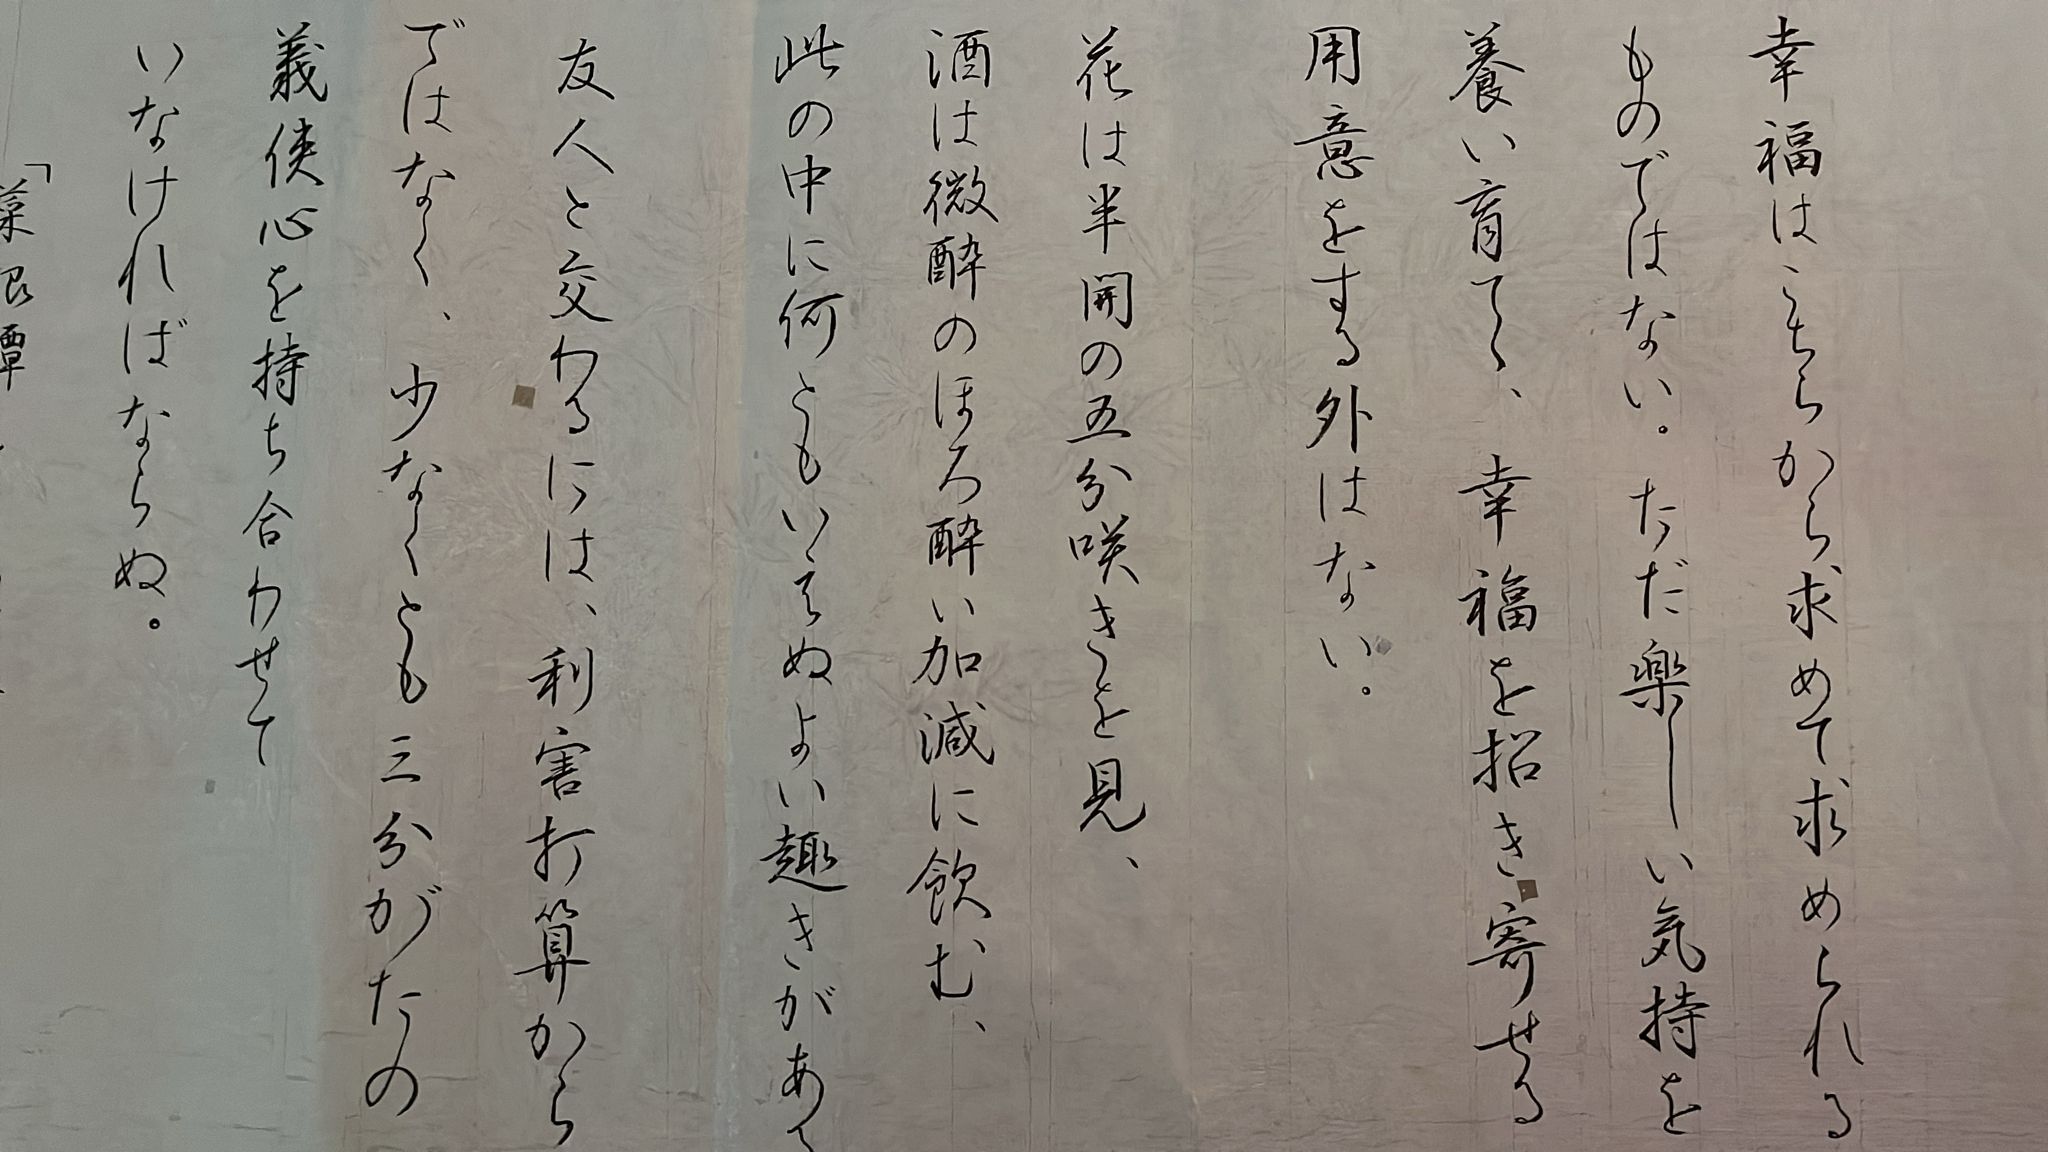 幸福はこちらから求めて求められる
ものではない。ただ楽しい気持を
養い育てて、幸福を招き寄せる
用意をする外はない。
花は半開の五分咲きを見、
酒は微酔のほろ酔い加減に飲む、
此の中に何ともいえぬよい趣きがある
友人と交わるには、利害打算から
ではなく、少なくとも三分がたの
義侠心を持ち合わせて
いなければならぬ。
「菜根譚